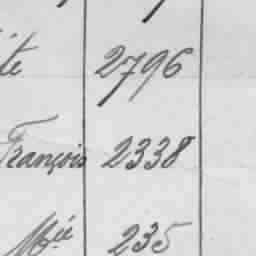 te 2796
François 2338
Mié 235